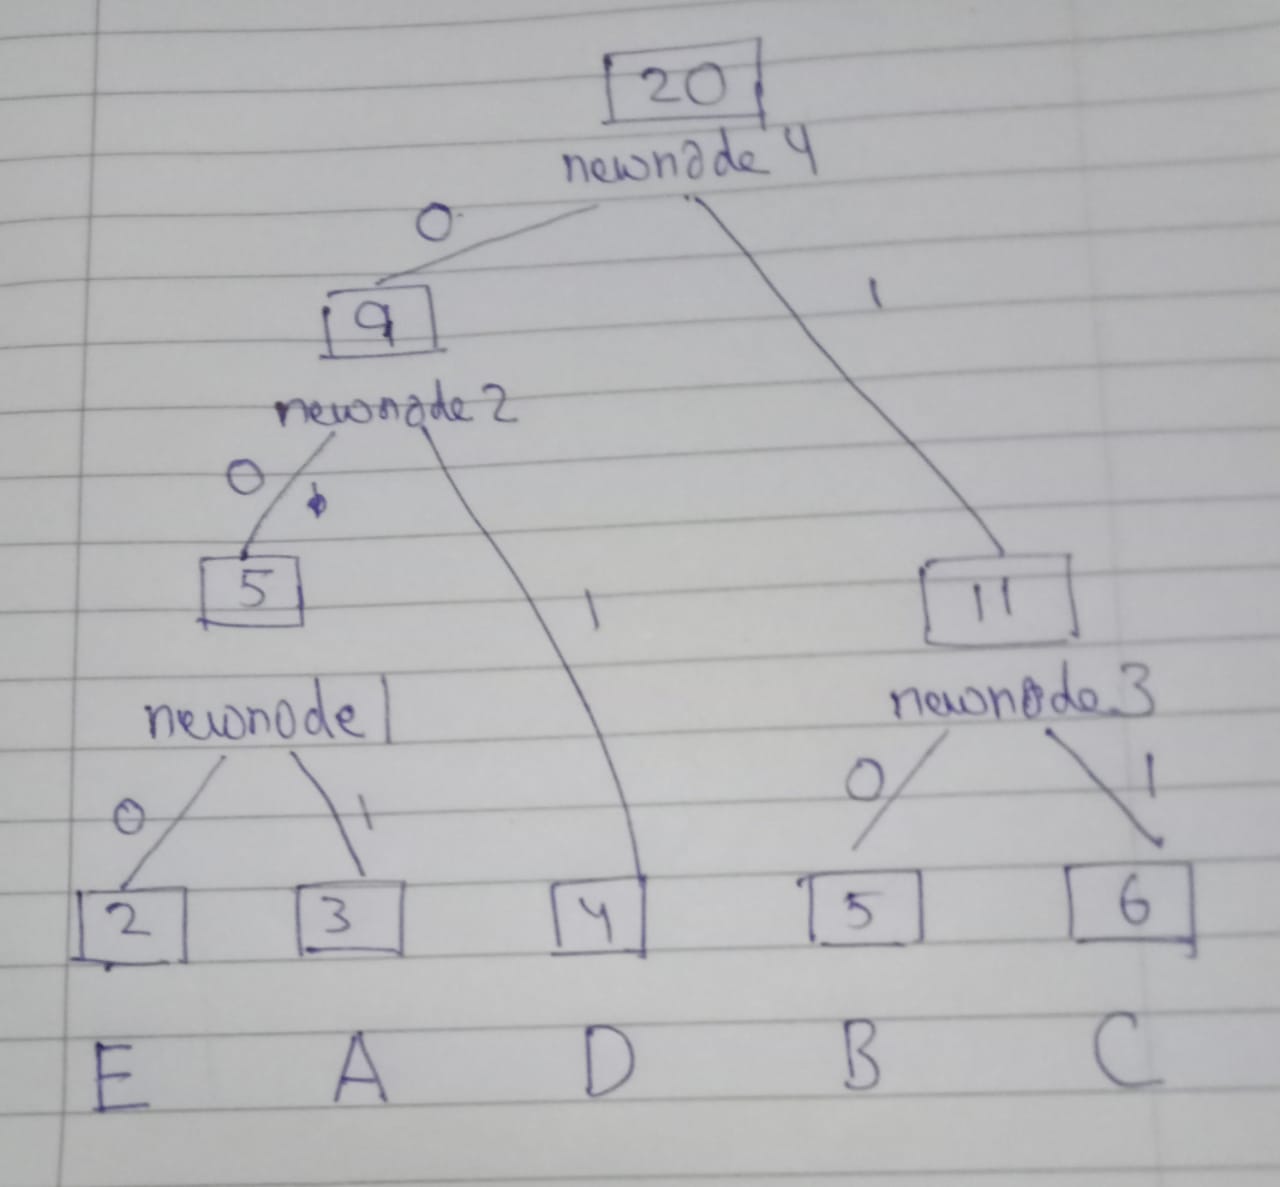 20
newnode 4
0
1
9
newnode 2
0
1
5
11
newnode 1
newnode 3
0
1
0
1
2 3 4 5 6
E A D B C